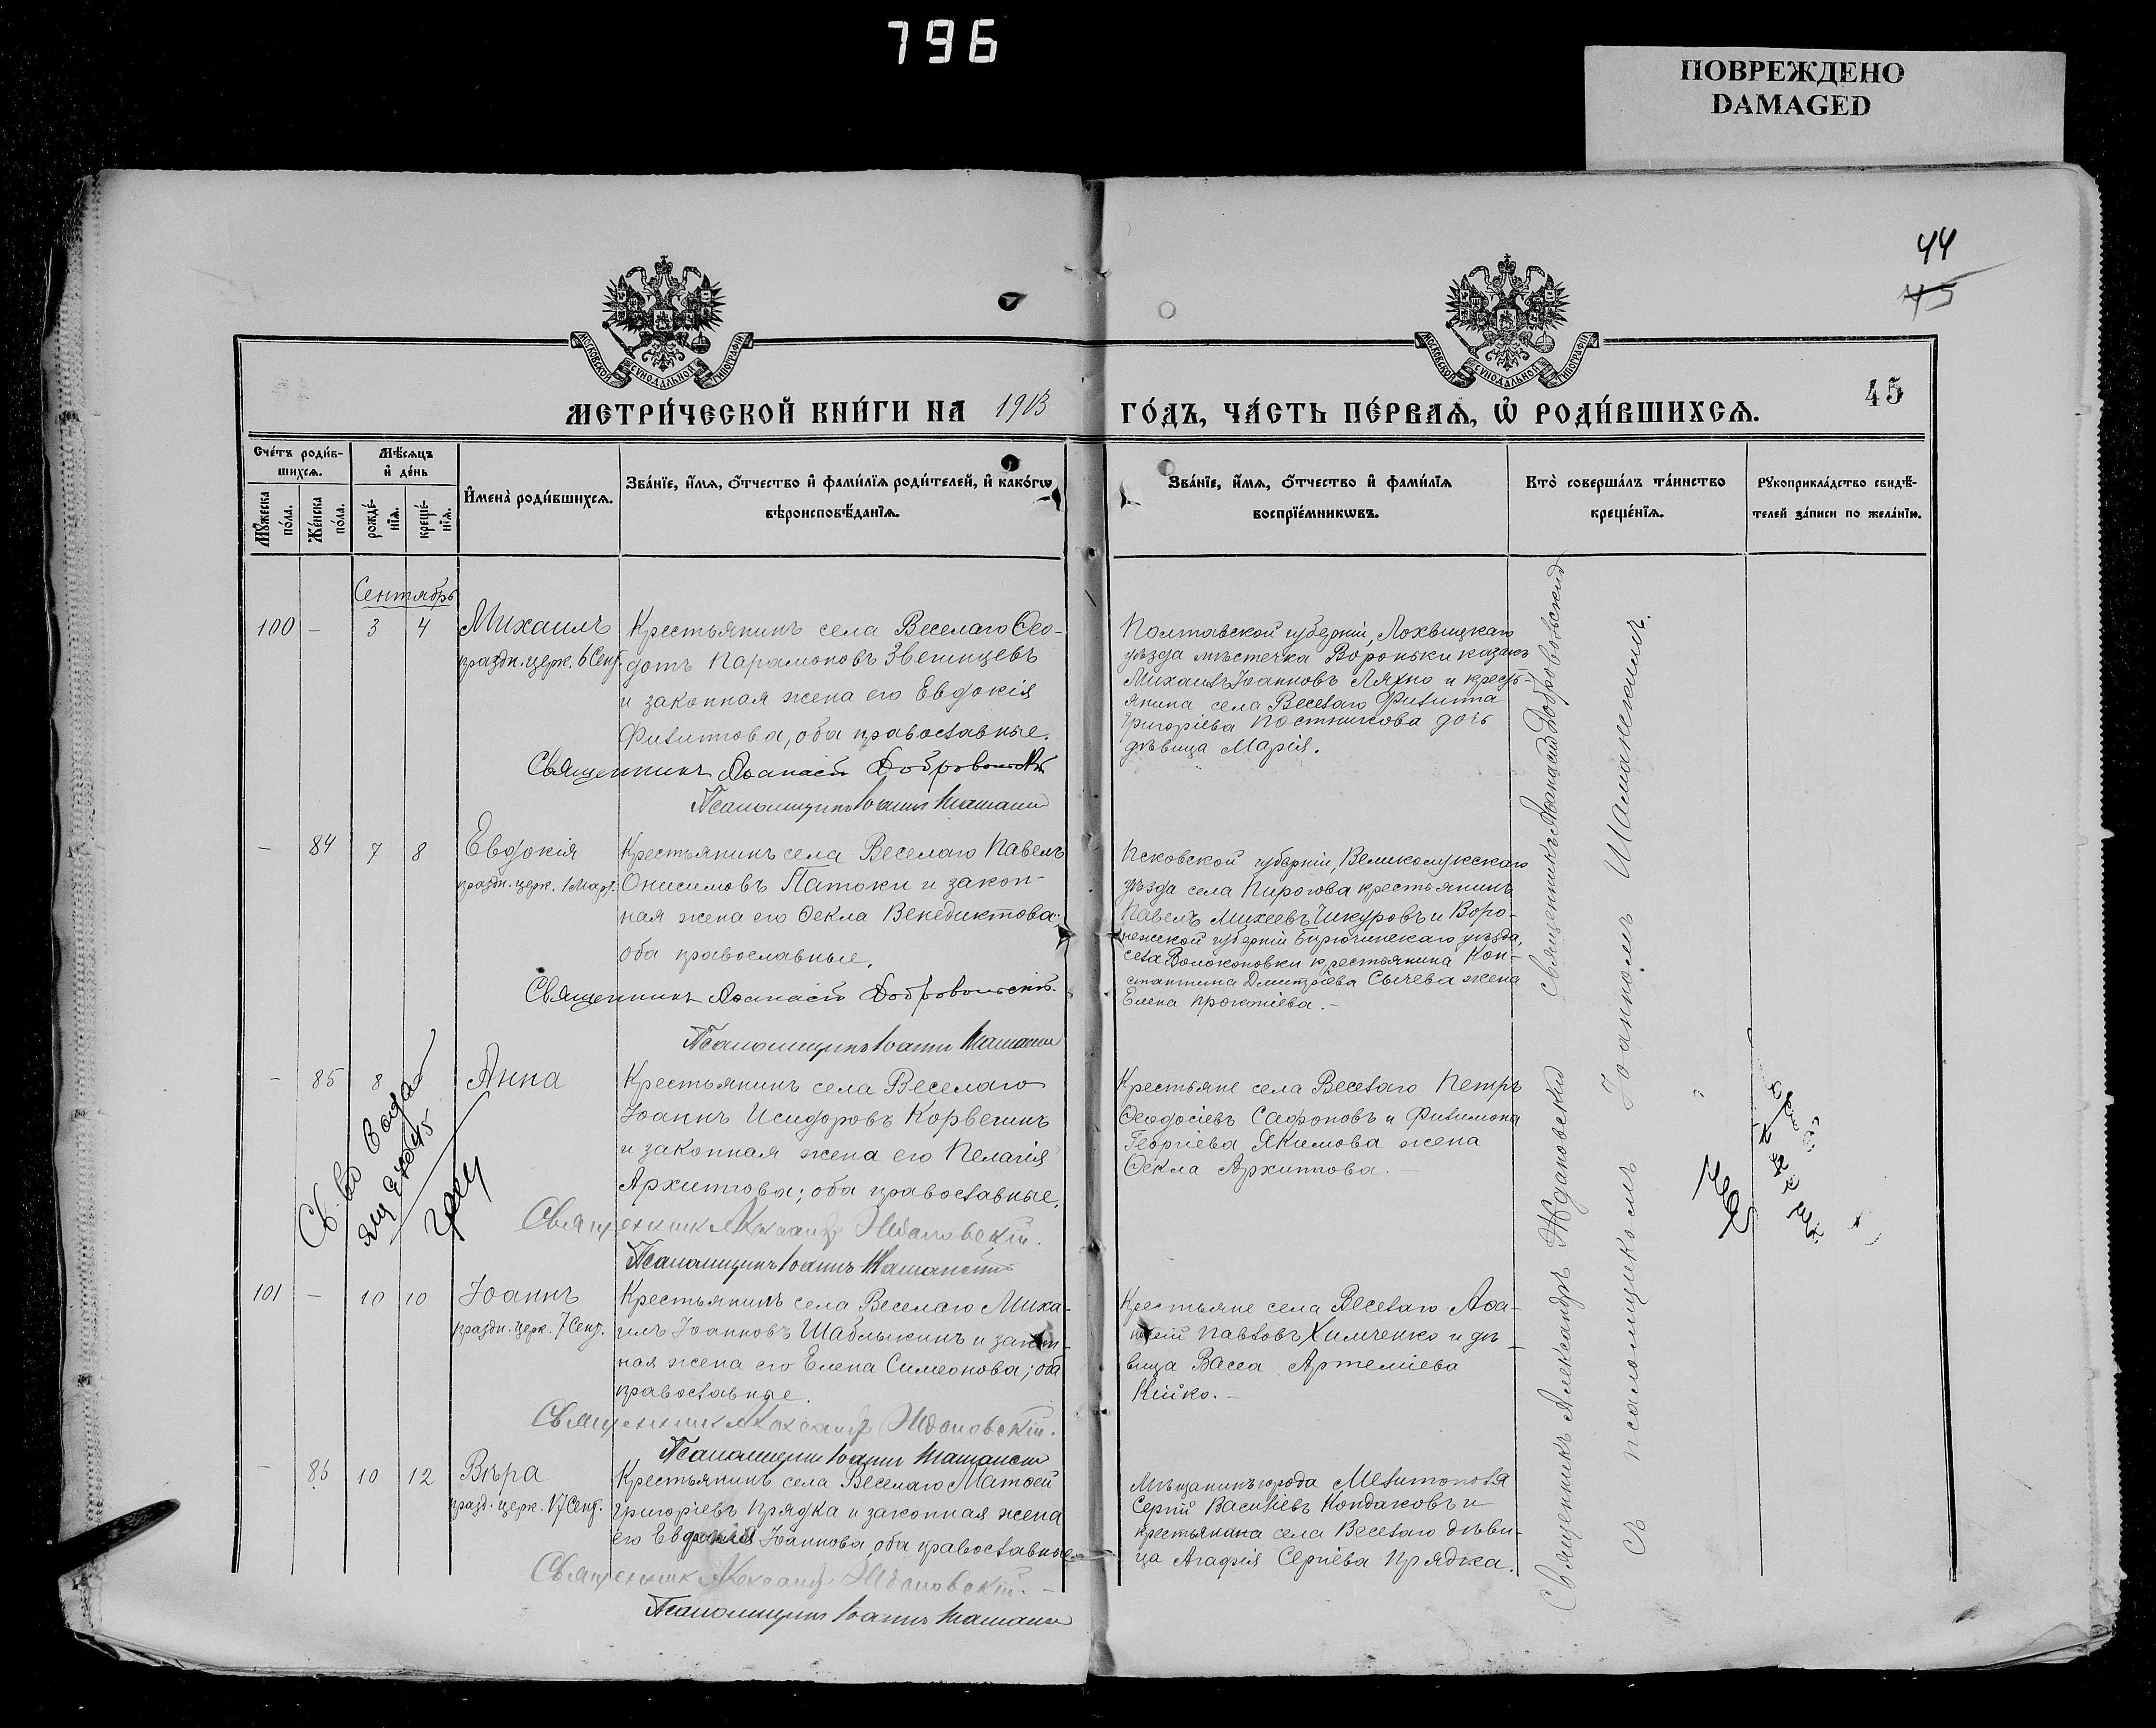 796
ПОВРЕЖДЕНО
DAMAGED
44
45
МОСКОВСКОЙ СѴНОДАЛЬНОЙ ТИПОГРАФІИ
МОСКОВСКОЙ СѴНОДАЛЬНОЙ ТИПОГРАФІИ
45
МЕТРИ́ЧЕСКОЙ КНИ́ГИ НА 1913
ГО́ДЪ, ЧА́СТЬ ПЕ́РВАѦ, Ѡ҆ РОДИ́ВШИХСѦ.
Сче́тъ роди́в-
шихсѧ.
Мꙋ́жеска
по́ла.
Же́нска
по́ла.
Мѣ́сѧцъ
и҆ де́нь
рожде́-
нїѧ.
креще́-
нїѧ.
И҆мена̀ роди́вшихсѧ.
Зва́нїе, и҆́мѧ, ѻ҆́тчество и҆ фами́лїѧ роди́телей, и҆ како́гѡ
вѣроисповѣ́данїѧ.
Зва́нїе, и҆́мѧ, ѻ҆́тчество и҆ фами́лїѧ
воспрїе́мникѡвъ.
Кто̀ соверша́лъ та́инство
креще́нїѧ.
Рꙋкоприкла́дство свидѣ́-
телей за́писи по жела́нїю.
Сентябрь
100 – 3 4 Михаилъ
праздн. церк. 6 Сент.
Крестьянинъ села Веселаго Ѳео-
дотъ Парамоновъ Звегинцевъ
и законная жена его Евдокія
Филиппова, оба православные.
Священникъ Аѳанасій Добровольскій
Псаломщикъ Іоаннъ
Полтавской губерніи, Лохвицкаго
уѣзда мѣстечка Вороньки казакъ
Михаилъ Іоанновъ Ляхно и кресть-
янина села Веселаго Филиппа
Григоріева Постникова дочь
дѣвица Марія.
– 84 7 8 Евдокія
праздн. церк. 1 Март.
Крестьянинъ села Веселаго Павелъ
Онисимовъ Патоки и закон-
ная жена его Ѳекла Венедиктова;
оба православные.
Священникъ Аѳанасій Добровольскій.
Псаломщикъ Іоаннъ
Псковской губерніи, Великолукскаго
уѣзда села Пирогова крестьянинъ
Павелъ Михеевъ Чикуровъ и Воро-
нежской губерніи Бирючинскаго уѣзда,
села Волоконовки крестьянина Кон-
стантина Дмитріева Сычева жена
Елена Прокопіева. –
– 85 8 Анна
Крестьянинъ села Веселаго
Іоаннъ Исидоровъ Корвегинъ
и законная жена его Пелагія
Архиппова; оба православные.
Священникъ Александръ Ждановскій.
Псаломщикъ Іоаннъ
Крестьяне села Веселаго Петръ
Ѳеодосіевъ Сафоновъ и Филимона
Георгіева Якимова жена
Ѳекла Архиппова. –
101 – 10 10 Іоаннъ
праздн. церк. 7 Сент.
Крестьянинъ села Веселаго Миха-
илъ Іоанновъ Шаблыкинъ и закон-
ная жена его Елена Симеонова; оба
православные.
Священникъ Александръ Ждановскій.
Псаломщикъ Іоаннъ
Крестьяне села Веселаго Аѳа-
насій Павловъ Химченко и дѣ-
вица Васса Артеміева
Кійко. –
– 86 10 12 Вѣра
празд. церк. 17 Сент.
Крестьянинъ села Веселаго Матѳей
Григоріевъ Прядка и законная жена
его Евдокія Іоаннова, оба православные
Священникъ Александръ Ждановскій. –
Псаломщикъ Іоаннъ
Мѣщанинъ города Мелитополя
Сергій Василіевъ Кондаковъ и
крестьянка села Веселаго дѣви-
ца Агафія Сергіева Прядка.
Священникъ Александръ Ждановскій Священникъ Аѳанасій Добровольскій
съ псаломщикомъ Іоанномъ